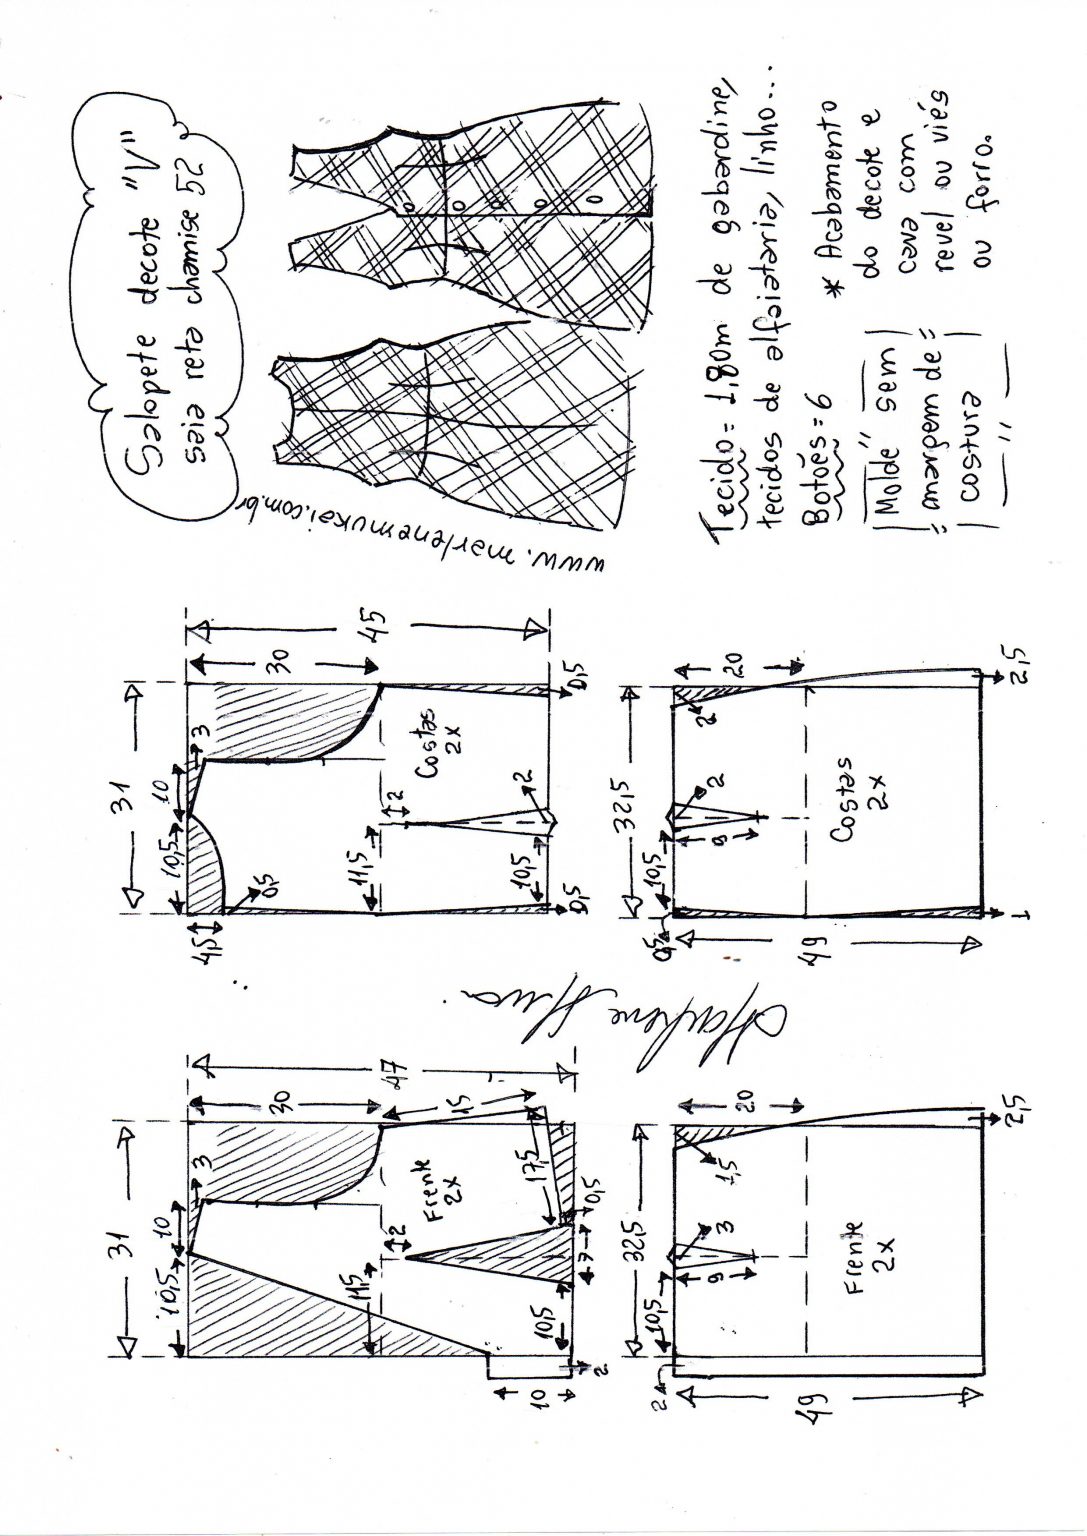 Salopete decote "V"
saia reta chamise 52
www.marlenemukai.com.br
Tecido = 1,80m de gabardine,
tecidos de alfaiataria, linho...
Botões = 6
Molde sem
margem de
costura
* Acabamento
do decote e
cava com
revel ou viés
ou forro.
31
10,5
10
3
30
47
15
17,5
11,5
2
Frente
2x
10,5
7
0,5
10
2
31
10,5
10
3
4,5
0,5
30
45
11,5
2
Costas
2x
10,5
2
0,5
0,5
32,5
2
10,5
9
3
1,5
20
49
Frente
2x
2,5
32,5
0,5
10,5
9
2
2
20
49
Costas
2x
1
2,5